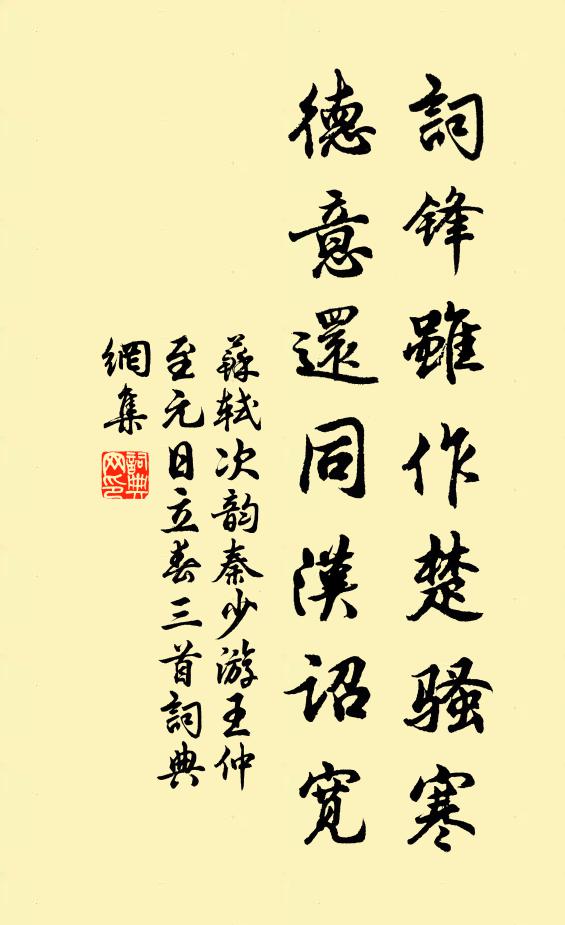 詞鋒雖作楚騷寒
德意還同漢詔寬
蘇軾次韵秦少游王仲
至元日立春三首詞典
網集
詞典網印